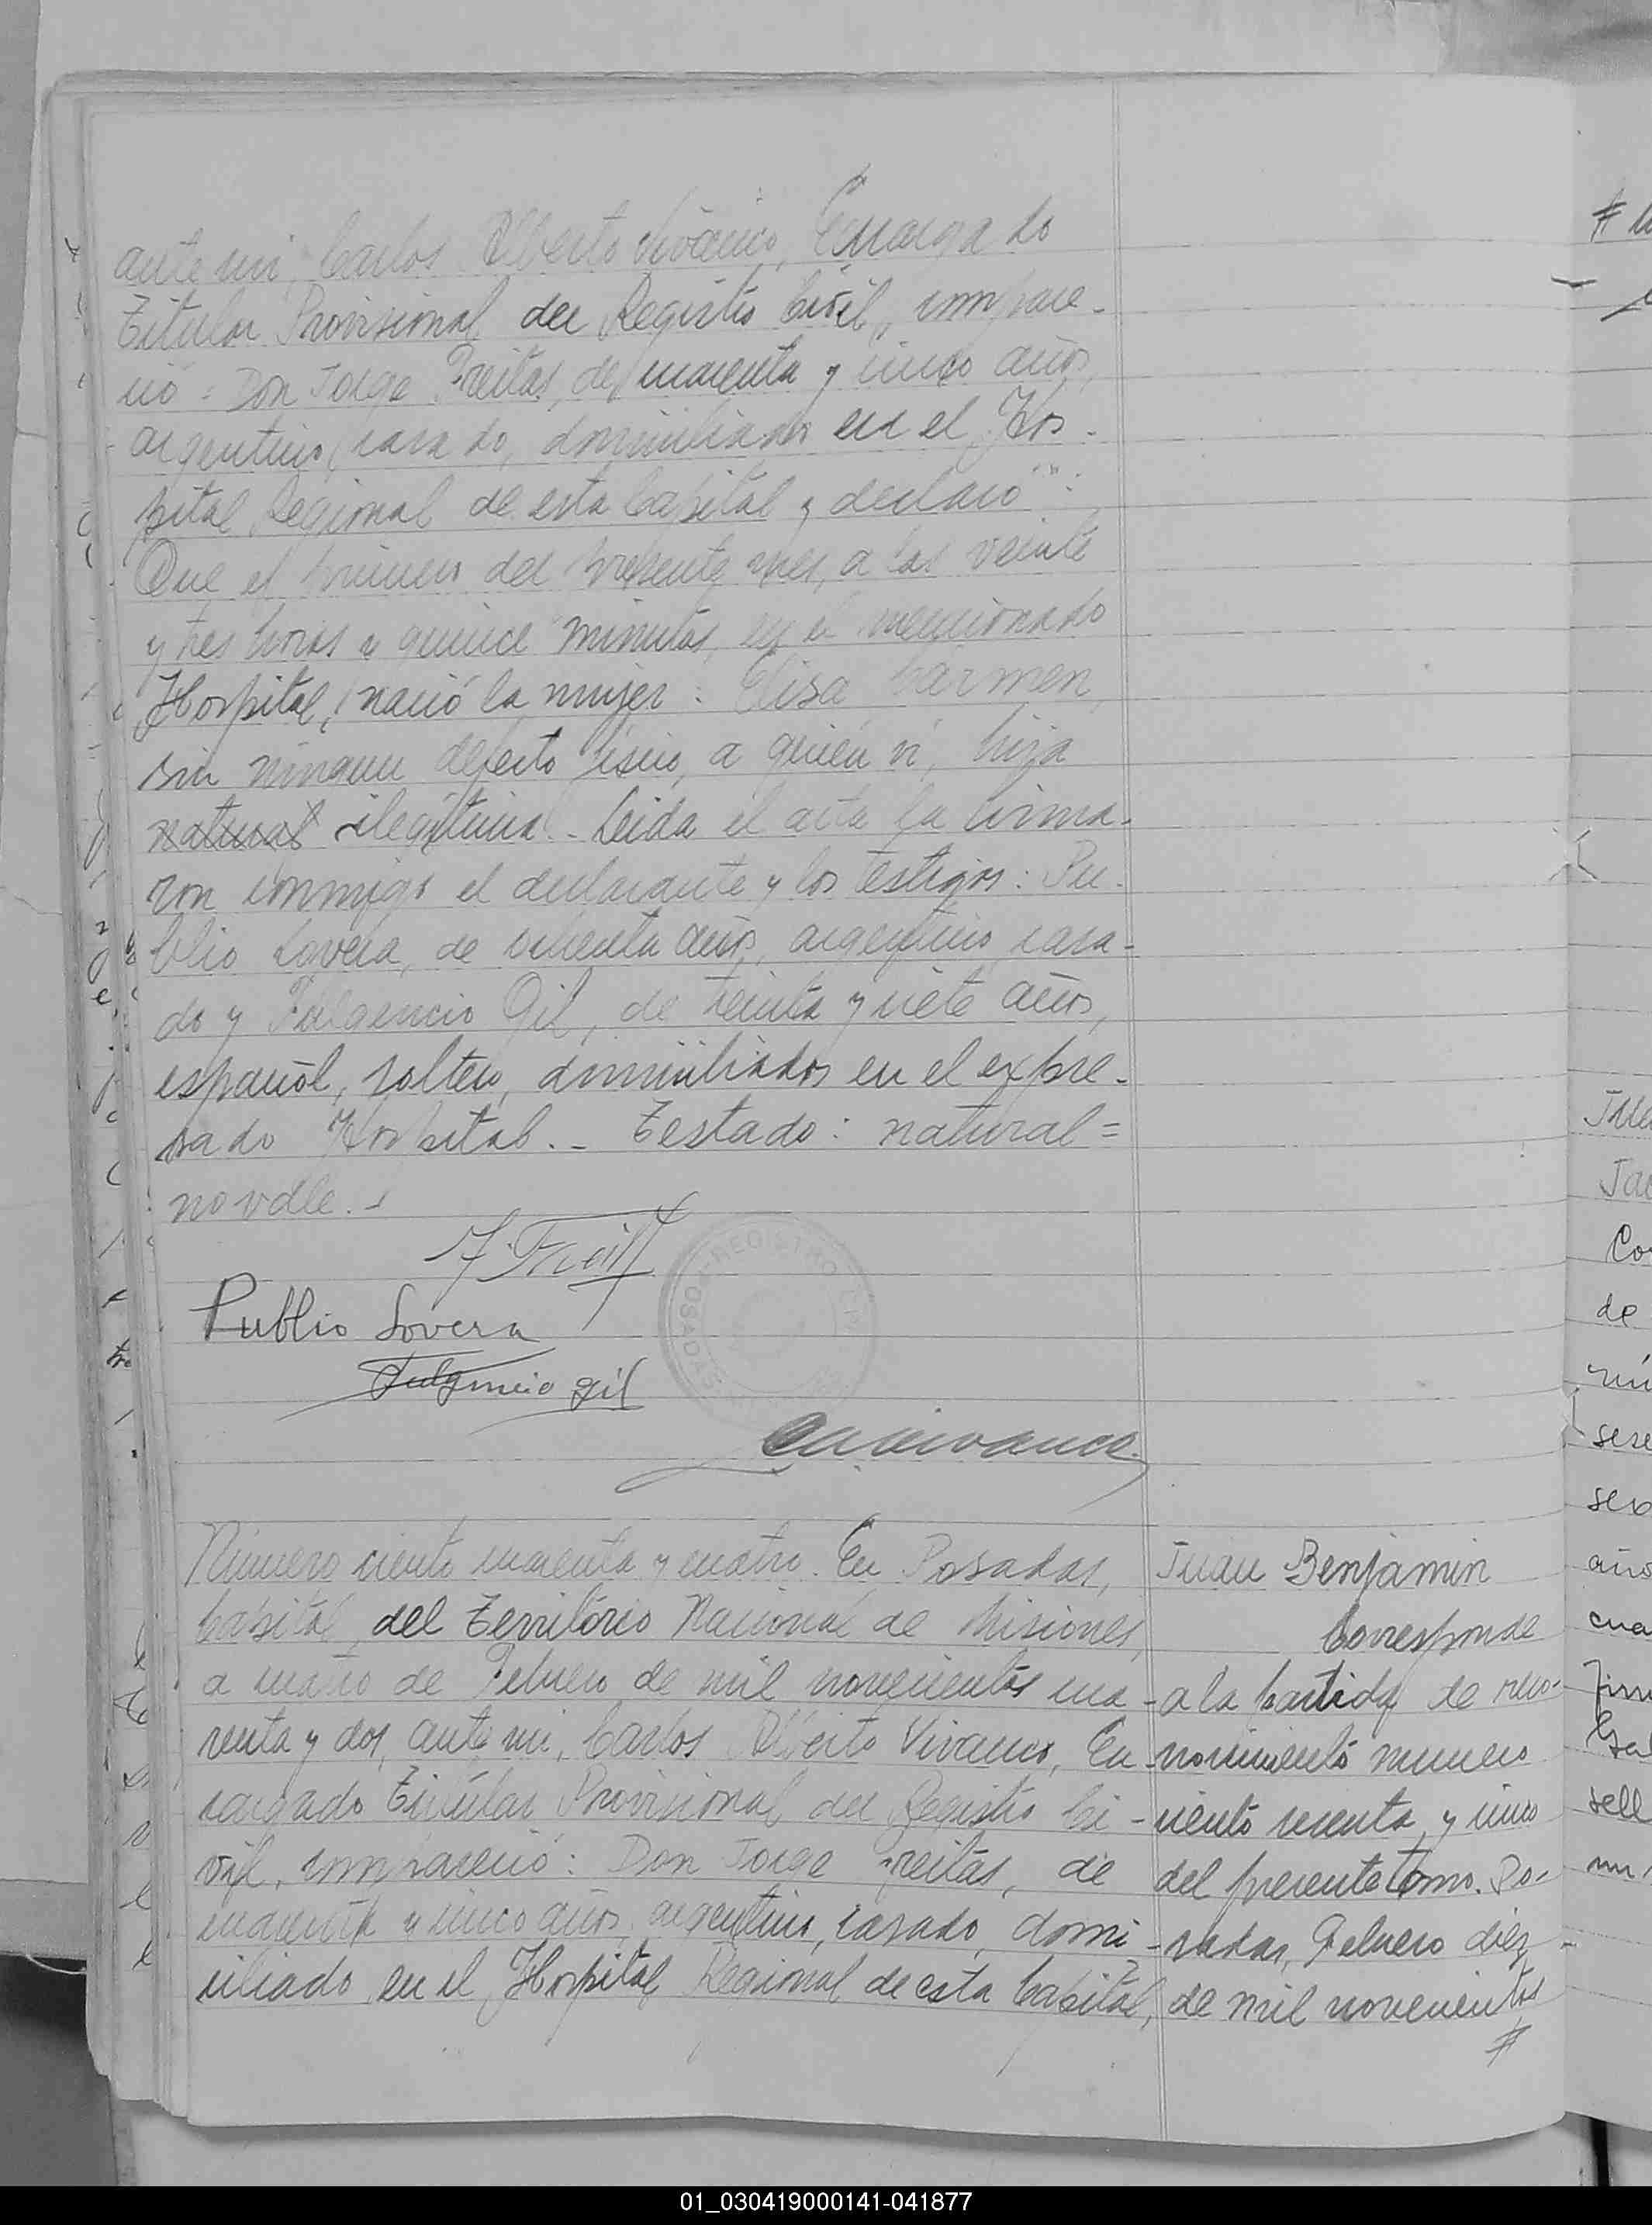 ante mi, Carlos Alberto Vivanco, Encargado
Titular Provisional del Registro Civil, compare-
ció: Don Jorge Freitas, de cuarenta y cinco años,
argentino, casado, domiciliado en el Hos-
pital Regional de esta Capital y declaró:
Que el primero del presente mes, a las veinte
y tres horas y quince minutos, en el mencionado
Hospital, nació la mujer: Elisa Carmen,
sin ningun defecto físico, a quién ví, hija
natural ilegítima. Leida el acta la firma-
ron conmigo el declarante y los testigos: Pu-
blio Lovera, de años, argentino, casa-
do y Fulgencio Gil, de treinta y siete años,
español, soltero, domiciliados en el expre-
sado Hospital.- Testado: natural=
no vale.-
J. Freitas
Publio Lovera
Fulgencio Gil
REGISTRO CIVIL
POSADAS
CAVivanco
Número ciento cuarenta y cuatro. En Posadas,
Capital, del Territorio Nacional de Misiones,
a cuatro de Febrero de mil novecientos cua-
renta y dos, ante mi, Carlos Alberto Vivanco, En-
cargado Titular Provisional del Registro Ci-
vil, compareció: Don Jorge Freitas, de
cuarenta y cinco años, argentino, casado, domi-
ciliado en el Hospital Regional de esta Capital,
Juan Benjamin
Corresponde
a la partida de reco-
nocimiento numero
ciento sesenta y cinco
del presente tomo. Po-
sadas, Febrero diez
de mil novecientos
#
#
Co
de
sell
01_030419000141-041877